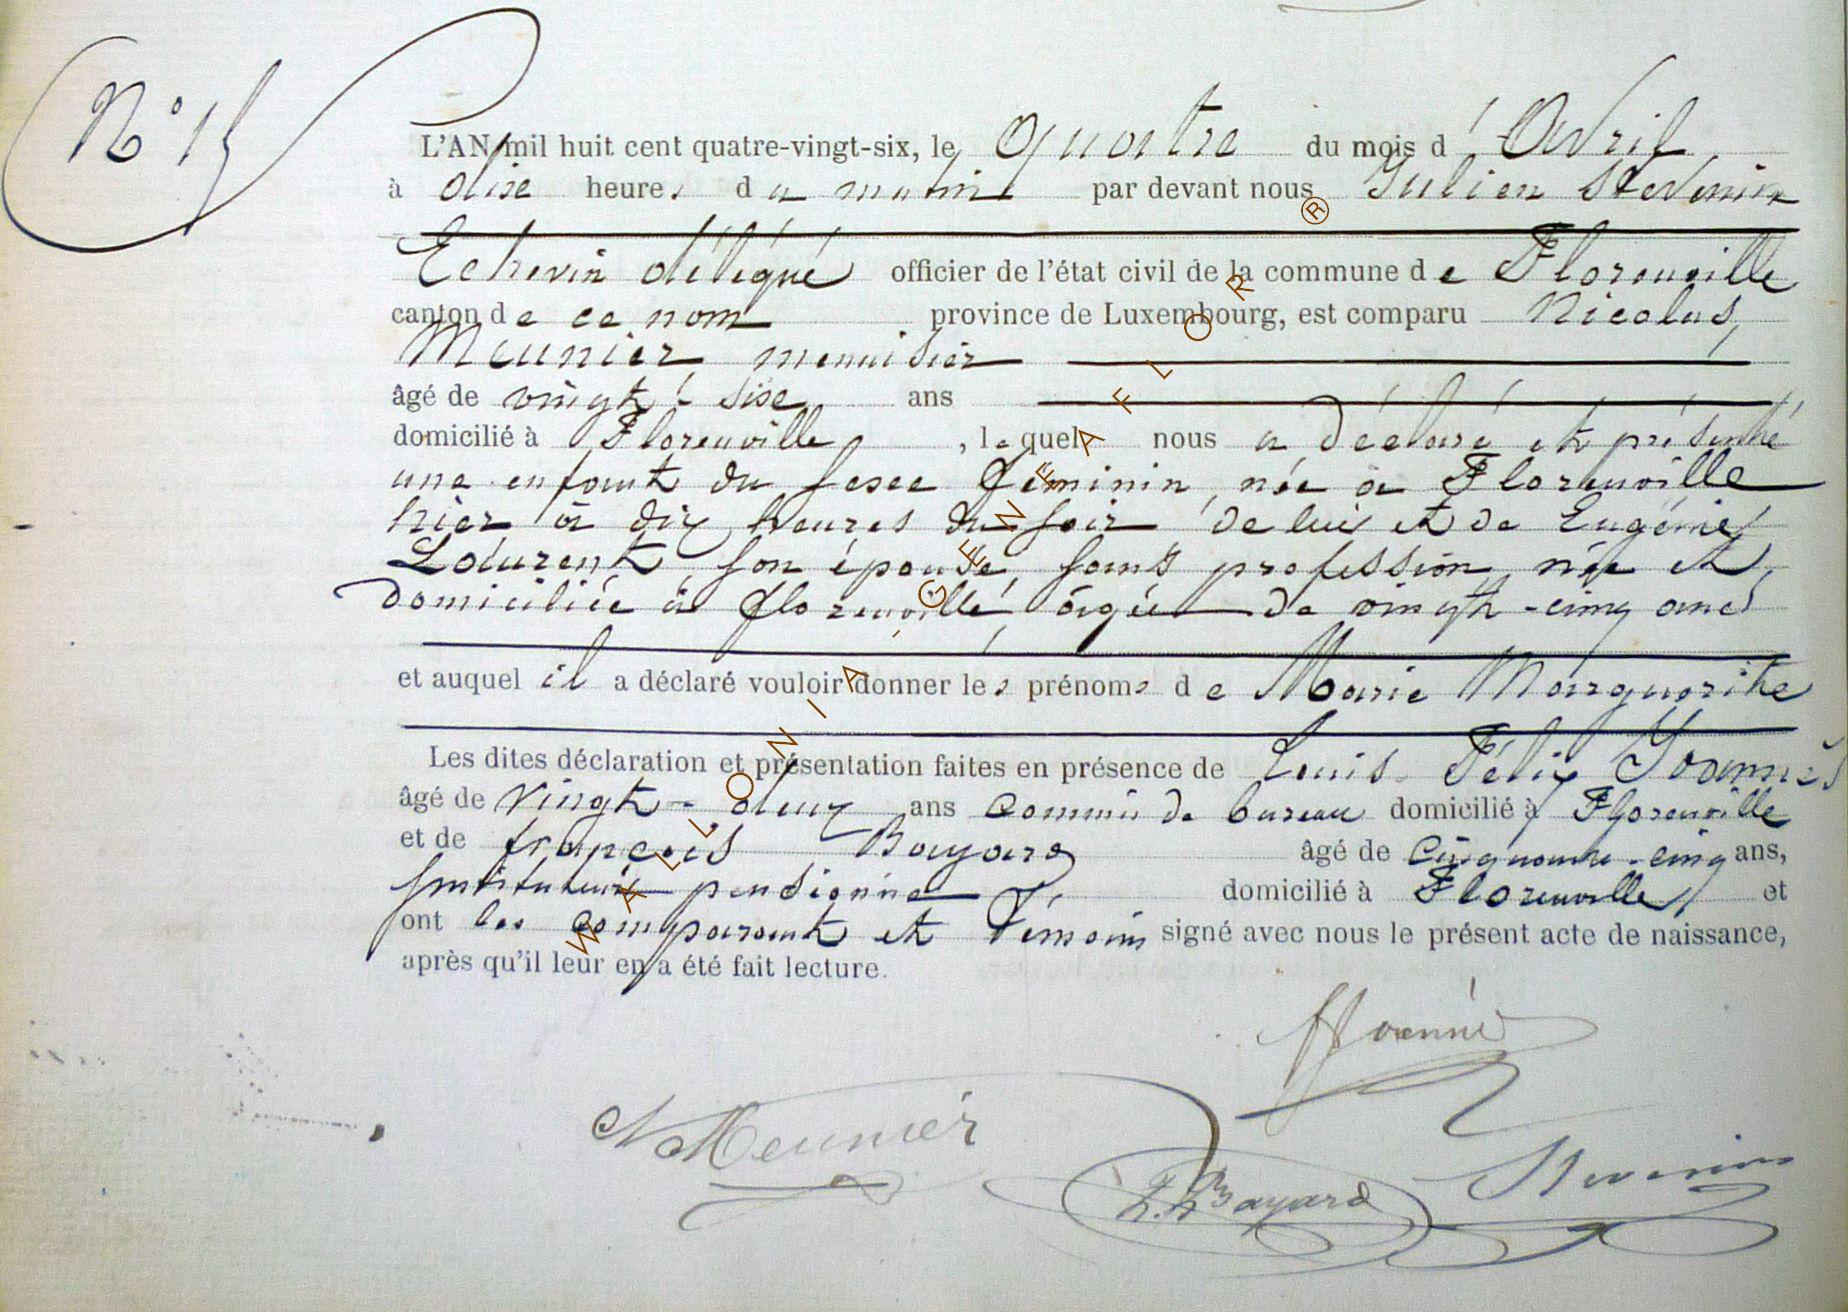 N° 15
L'AN mil huit cent quatre-vingt-six, le Quatre du mois d'Avril
à dixe heures du matin par devant nous Julien Stevenin
Echevin délégué officier de l'état civil de la commune de Florenville
canton de ce nom province de Luxembourg, est comparu Nicolas
Meunier, menuisier
âgé de vingt-sixe ans
domicilié à Florenville, lequel nous a déclaré et présenté
une enfant du sexe féminin, née à Florenville
hier à dix heures du soir de lui et de Eugénie
Laurent son épouse, sans profession, née et
domiciliée à florenville, âgée de vingt-cinq ans
et auquel il a déclaré vouloir donner les prénoms de Marie Marguerite
Les dites déclaration et présentation faites en présence de Louis Félix Joannès
âgé de vingt-deux ans commis de bureau domicilié à Florenville
et de françois Bayard âgé de cinquante-cinq ans,
Instituteur pensionné domicilié à Florenville, et
ont les comparant et témoins signé avec nous le présent acte de naissance,
après qu'il leur en a été fait lecture.
N Meunier
Bayard
Stevenin
WALLONIA, GENEAFLOR ®